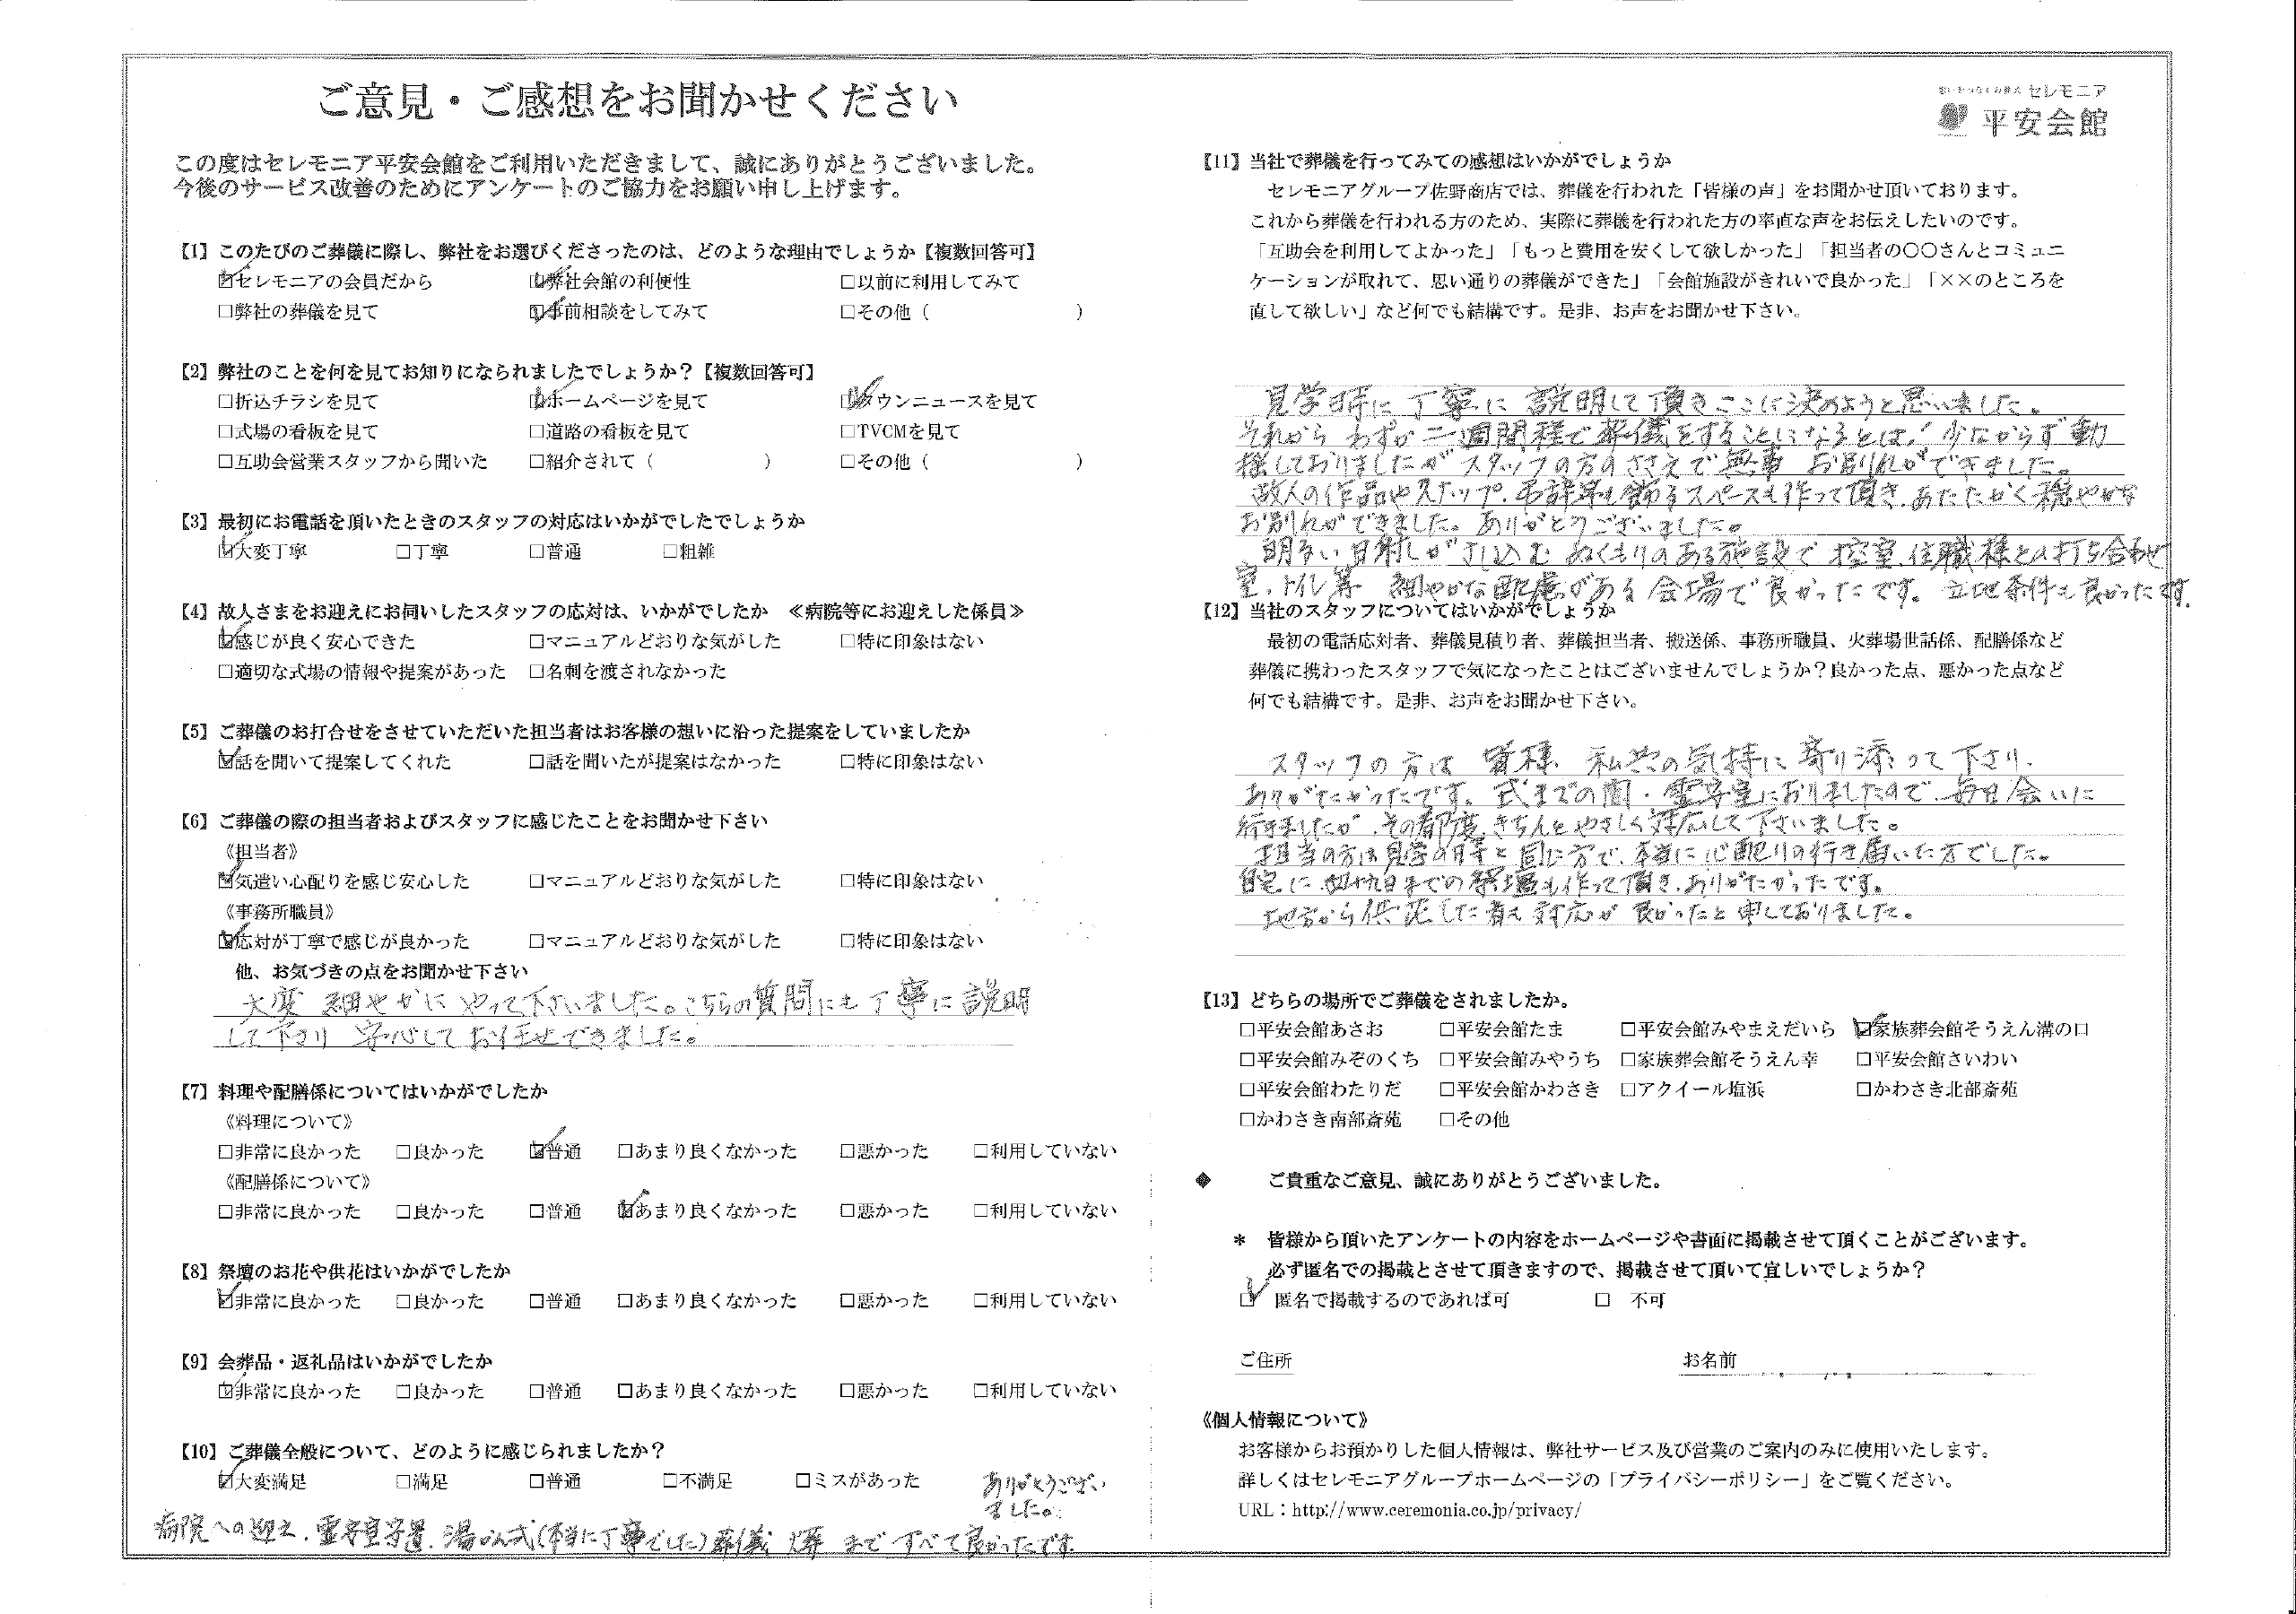 ご意見・ご感想をお聞かせください
この度はセレモニア平安会館をご利用いただきまして、誠にありがとうございました。
今後のサービス改善のためにアンケートのご協力をお願い申し上げます。
【1】このたびのご葬儀に際し、弊社をお選びくださったのは、どのような理由でしょうか【複数回答可】
☑セレモニアの会員だから ☑弊社会館の利便性 □以前に利用してみて
□弊社の葬儀を見て ☑事前相談をしてみて □その他（ ）
【2】弊社のことを何を見てお知りになられましたでしょうか？【複数回答可】
□折込チラシを見て ☑ホームページを見て ☑タウンニュースを見て
□式場の看板を見て □道路の看板を見て □TVCMを見て
□互助会営業スタッフから聞いた □紹介されて（ ） □その他（ ）
【3】最初にお電話を頂いたときのスタッフの対応はいかがでしたでしょうか
☑大変丁寧 □丁寧 □普通 □粗雑
【4】故人さまをお迎えにお伺いしたスタッフの応対は、いかがでしたか ≪病院等にお迎えした係員≫
☑感じが良く安心できた □マニュアルどおりな気がした □特に印象はない
□適切な式場の情報や提案があった □名刺を渡されなかった
【5】ご葬儀のお打合せをさせていただいた担当者はお客様の想いに沿った提案をしていましたか
☑話を聞いて提案してくれた □話を聞いたが提案はなかった □特に印象はない
【6】ご葬儀の際の担当者およびスタッフに感じたことをお聞かせ下さい
《担当者》
☑気遣い心配りを感じ安心した □マニュアルどおりな気がした □特に印象はない
《事務所職員》
☑応対が丁寧で感じが良かった □マニュアルどおりな気がした □特に印象はない
他、お気づきの点をお聞かせ下さい
大変 細やかに やって下さいました。こちらの質問にも丁寧に説明
して下さり 安心してお任せできました。
【7】料理や配膳係についてはいかがでしたか
《料理について》
□非常に良かった □良かった ☑普通 □あまり良くなかった □悪かった □利用していない
《配膳係について》
□非常に良かった □良かった □普通 ☑あまり良くなかった □悪かった □利用していない
【8】祭壇のお花や供花はいかがでしたか
☑非常に良かった □良かった □普通 □あまり良くなかった □悪かった □利用していない
【9】会葬品・返礼品はいかがでしたか
☑非常に良かった □良かった □普通 □あまり良くなかった □悪かった □利用していない
【10】ご葬儀全般について、どのように感じられましたか？
☑大変満足 □満足 □普通 □不満足 □ミスがあった
ありがとうござい
ました。
病院への迎え、霊安室安置、湯かん式(本当に丁寧でした)葬儀 火葬 まで すべて良かったです
セレモニア
平安会館
【11】当社で葬儀を行ってみての感想はいかがでしょうか
セレモニアグループ佐野商店では、葬儀を行われた「皆様の声」をお聞かせ頂いております。
これから葬儀を行われる方のため、実際に葬儀を行われた方の率直な声をお伝えしたいのです。
「互助会を利用してよかった」「もっと費用を安くして欲しかった」「担当者の〇〇さんとコミュニ
ケーションが取れて、思い通りの葬儀ができた」「会館施設がきれいで良かった」「××のところを
直して欲しい」など何でも結構です。是非、お声をお聞かせ下さい。
見学時に丁寧に説明して頂きここに決めようと思いました。
それから わずか二週間程で葬儀をすることになるとは! 少なからず動
揺しておりましたがスタッフの方のささえで無事 お別れができました。
故人の作品やスナップ、弔辞等も飾るスペースも作って頂き、あたたかく穏やかな
お別れができました。ありがとうございました。
明るい日射しが射し込む ぬくもりのある施設で 控室、住職様との打ち合わせ
室、トイレ等 細やかな配慮がある会場で良かったです。立地条件も良かったです。
【12】当社のスタッフについてはいかがでしょうか
最初の電話応対者、葬儀見積り者、葬儀担当者、搬送係、事務所職員、火葬場世話係、配膳係など
葬儀に携わったスタッフで気になったことはございませんでしょうか？良かった点、悪かった点など
何でも結構です。是非、お声をお聞かせ下さい。
スタッフの方は 皆様 私共の気持に寄り添って下さり、
ありがたかったです。式までの間・霊安室におりましたので、毎日会いに
行きましたが、その都度、きちんとやさしく対応して下さいました。
担当の方は見学の時と同じ方で、本当に心配りの行き届いた方でした。
自宅に 四十九日までの祭壇も作って頂き、ありがたかったです。
地方から供花した者も対応が良かったと申しておりました。
【13】どちらの場所でご葬儀をされましたか。
□平安会館あさお □平安会館たま □平安会館みやまえだいら ☑家族葬会館そうえん溝の口
□平安会館みぞのくち □平安会館みやうち □家族葬会館そうえん幸 □平安会館さいわい
□平安会館わたりだ □平安会館かわさき □アクイール塩浜 □かわさき北部斎苑
□かわさき南部斎苑 □その他
◆ ご貴重なご意見、誠にありがとうございました。
＊ 皆様から頂いたアンケートの内容をホームページや書面に掲載させて頂くことがございます。
必ず匿名での掲載とさせて頂きますので、掲載させて頂いて宜しいでしょうか？
☑ 匿名で掲載するのであれば可 □ 不可
ご住所 お名前
《個人情報について》
お客様からお預かりした個人情報は、弊社サービス及び営業のご案内のみに使用いたします。
詳しくはセレモニアグループホームページの「プライバシーポリシー」をご覧ください。
URL：http://www.ceremonia.co.jp/privacy/